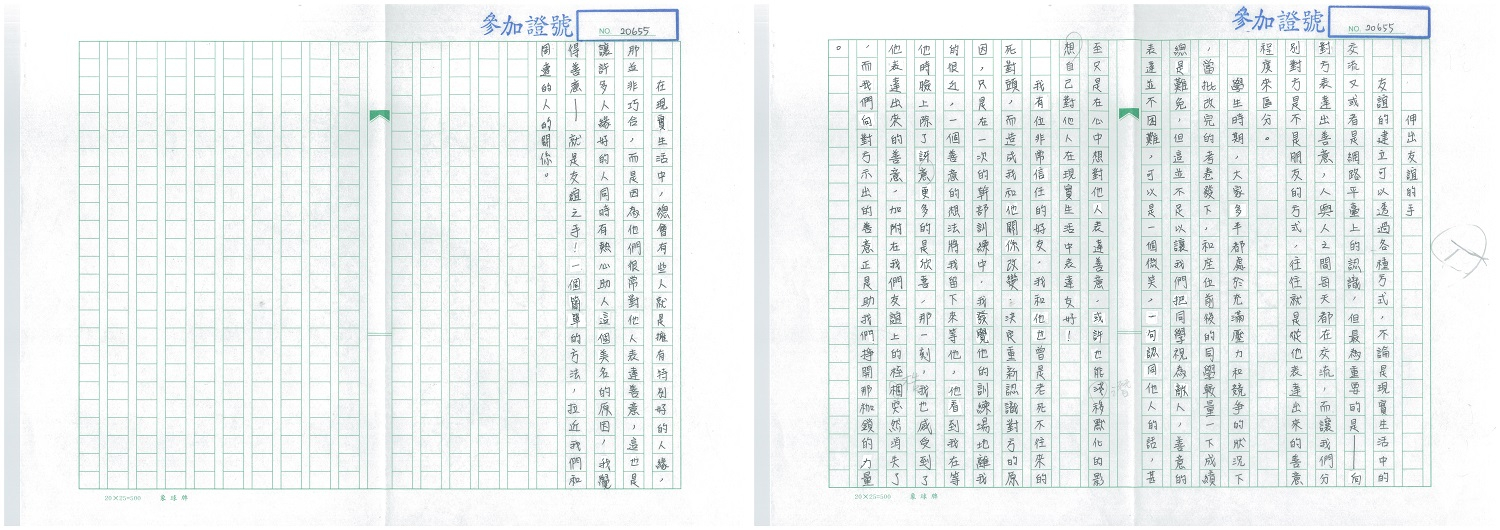 參加證號
NO. 20655
伸出友誼的手
友誼的建立可以透過各種方式,不論是現實生活中的
交流又或者是網路平臺上的認識,但最為重要的是——向
對方表達出善意,人與人之間每天都在交流,而讓我們分
別對方是不是朋友的方式,往往就是從他表達出來的善意
程度來區分。
學生時期,大家多半都處於充滿壓力和競爭的狀況下
,當批改完的考卷發下,和座位前後的同學較量一下成績
總是難免,但這並不足以讓我們把同學視為敵人,善意的
表達並不困難,可以是一個微笑,一句認同他人的話,甚
至只是在心中想對他人表達善意,或許也能淺移默化的影
想自己對他人在現實生活中表達友好!
我有位非常信任的好友,我和他也曾是老死不往來的
死對頭,而造成我和他關係改變、決定重新認識對方的原
因,只是在一次的幹部訓練中,我發覺他的訓練場地離我
的很近,一個善意的想法將我留下來等他,他看到我在等
他時臉上除了訝意更多的是欣喜,那一刻,我也感受到了
他表達出來的善意,加附在我們友誼上的桎梏突然消失了
,而我們向對方示出的善意正是助我們掙開那枷鎖的力量
。
20×25=500 象球牌
參加證號
NO. 20655
在現實生活中,總會有些人就是擁有特別好的人緣,
那並非巧合,而是因為他們很常對他人表達善意,這也是
讓許多人緣好的人同時有熱心助人這個美名的原因,我覺
得善意——就是友誼之手!一個簡單的方法,拉近我們和
周遭的人的關係。
20×25=500 象球牌